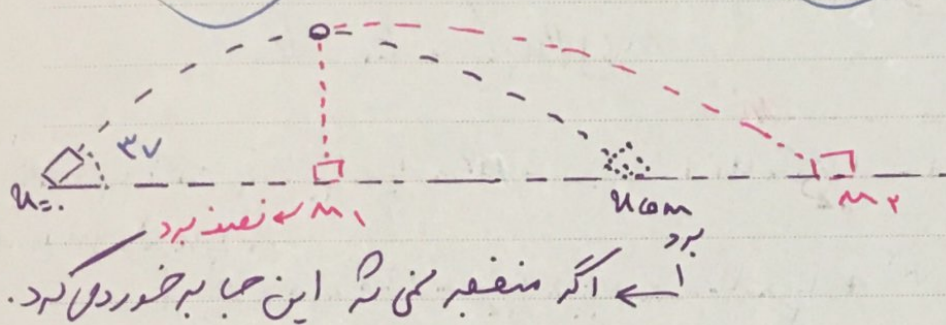 ۳۷
x=۰
x₁ ← نصف برد
x com
x₂
برد
← اگر منفجر نمی شد این جا برخورد می کرد.